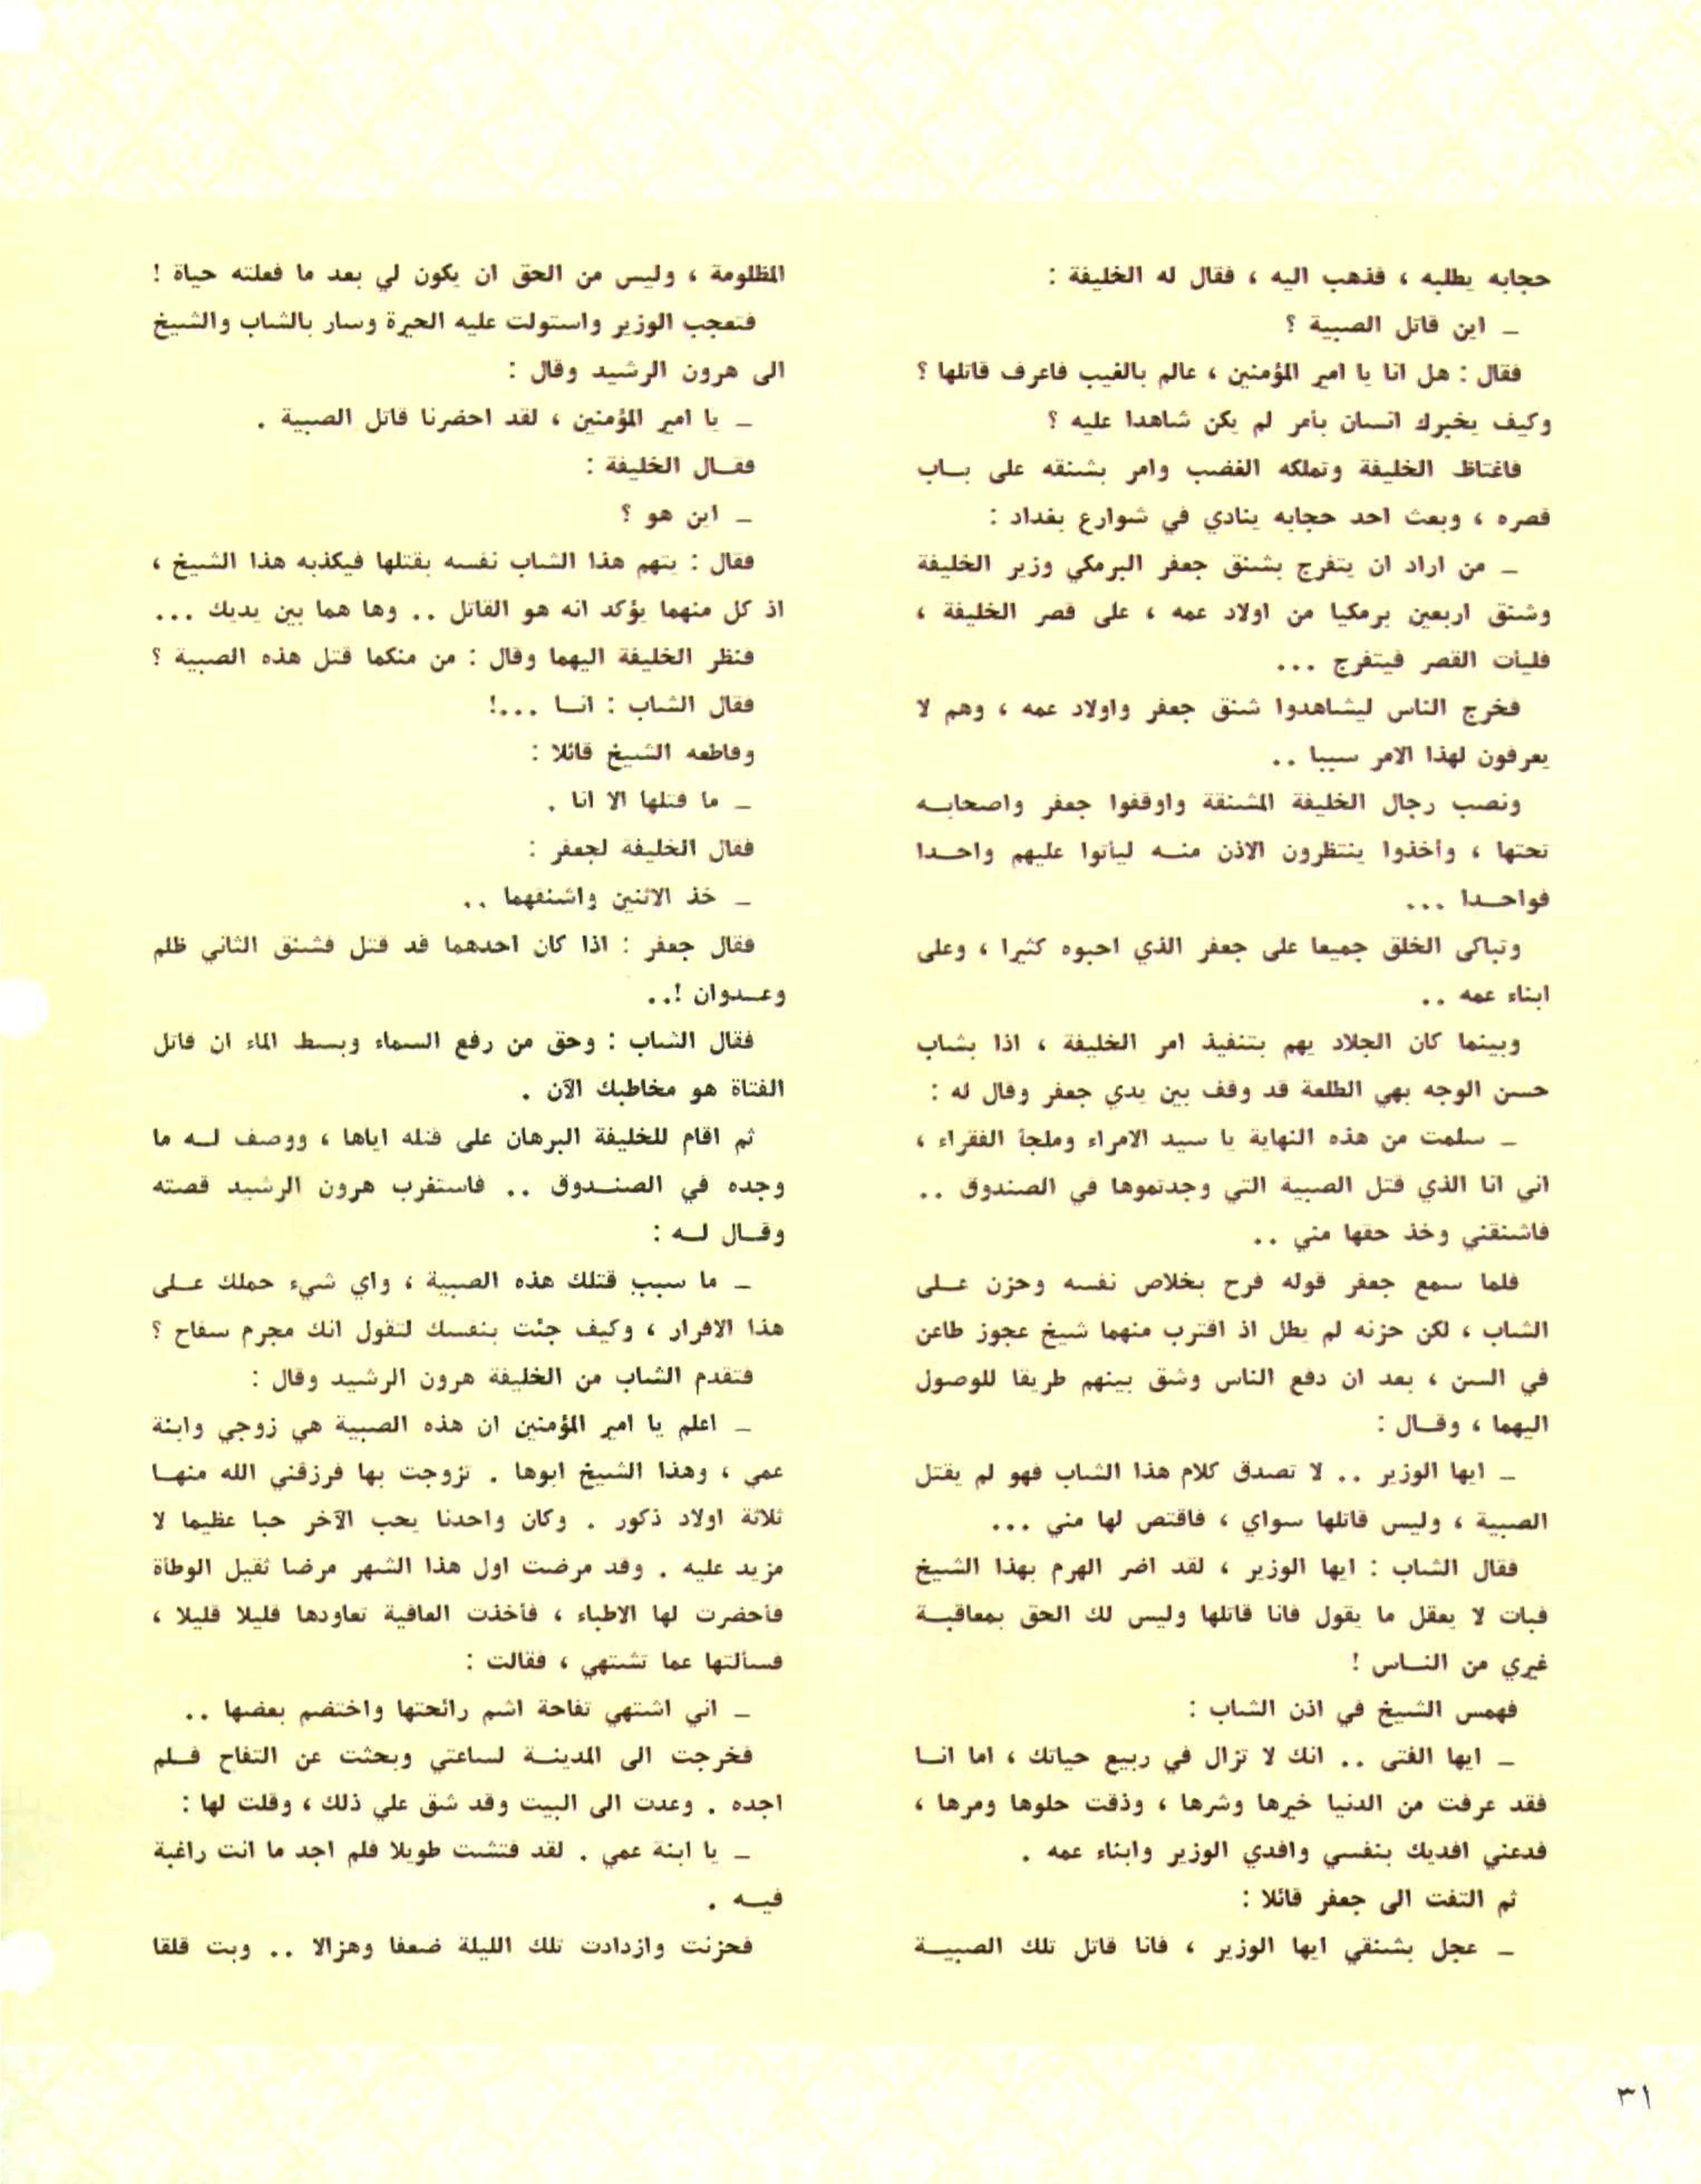 حجابه يطلبه ، فذهب اليه ، فقال له الخليفة :
ـ اين قاتل الصبية ؟
فقال : هل انا يا امير المؤمنين ، عالم بالغيب فاعرف قاتلها ؟
وكيف يخبرك انسان بأمر لم يكن شاهدا عليه ؟
فاغتاظ الخليفة وتملكه الغضب وامر بشنقه على بـاب
قصره ، وبعث احد حجابه ينادي في شوارع بغداد :
ـ من اراد ان يتفرج بشنق جعفر البرمكي وزير الخليفة
وشنق اربعين برمكيا من اولاد عمه ، على قصر الخليفة ،
فليأت القصر فيتفرج ...
فخرج الناس ليشاهدوا شنق جعفر واولاد عمه ، وهم لا
يعرفون لهذا الامر سببا ..
ونصب رجال الخليفة المشنقة واوقفوا جعفر واصحابـه
تحتها ، وأخذوا ينتظرون الاذن منـه ليأتوا عليهم واحـدا
فواحـدا ...
وتباكى الخلق جميعا على جعفر الذي احبوه كثيرا ، وعلى
ابناء عمه ..
وبينما كان الجلاد يهم بتنفيذ امر الخليفة ، اذا بشاب
حسن الوجه بهي الطلعة قد وقف بين يدي جعفر وقال له :
ـ سلمت من هذه النهاية يا سيد الامراء وملجأ الفقراء ،
اني انا الذي قتل الصبية التي وجدتموها في الصندوق ..
فاشنقني وخذ حقها مني ..
فلما سمع جعفر قوله فرح بخلاص نفسه وحزن عـلى
الشاب ، لكن حزنه لم يطل اذ اقترب منهما شيخ عجوز طاعن
في السن ، بعد ان دفع الناس وشق بينهم طريقا للوصول
اليهما ، وقـال :
ـ ايها الوزير .. لا تصدق كلام هذا الشاب فهو لم يقتل
الصبية ، وليس قاتلها سواي ، فاقتص لها مني ...
فقال الشاب : ايها الوزير ، لقد اضر الهرم بهذا الشيخ
فبات لا يعقل ما يقول فانا قاتلها وليس لك الحق بمعاقبـة
غيري من النـاس !
فهمس الشيخ في اذن الشاب :
ـ ايها الفتى .. انك لا تزال في ربيع حياتك ، اما انـا
فقد عرفت من الدنيا خيرها وشرها ، وذقت حلوها ومرها ،
فدعني افديك بنفسي وافدي الوزير وابناء عمه .
ثم التفت الى جعفر قائلا :
ـ عجل بشنقي ايها الوزير ، فانا قاتل تلك الصبيـة
المظلومة ، وليس من الحق ان يكون لي بعد ما فعلته حياة !
فتعجب الوزير واستولت عليه الحيرة وسار بالشاب والشيخ
الى هرون الرشيد وقال :
ـ يا امير المؤمنين ، لقد احضرنا قاتل الصبية .
فقـال الخليفة :
ـ اين هو ؟
فقال : يتهم هذا الشاب نفسه بقتلها فيكذبه هذا الشيخ ،
اذ كل منهما يؤكد انه هو القاتل .. وها هما بين يديك ...
فنظر الخليفة اليهما وقال : من منكما قتل هذه الصبية ؟
فقال الشاب : انـا ...!
وقاطعه الشيخ قائلا :
ـ ما قتلها الا انا .
فقال الخليفة لجعفر :
ـ خذ الاثنين واشنقهما ..
فقال جعفر : اذا كان احدهما قد قتل فشنق الثاني ظلم
وعـدوان !..
فقال الشاب : وحق من رفع السماء وبسط الماء ان قاتل
الفتاة هو مخاطبك الآن .
ثم اقام للخليفة البرهان على قتله اياها ، ووصف لـه ما
وجده في الصنـدوق .. فاستغرب هرون الرشيد قصته
وقـال لـه :
ـ ما سبب قتلك هذه الصبية ، واي شيء حملك عـلى
هذا الاقرار ، وكيف جئت بنفسك لتقول انك مجرم سفاح ؟
فتقدم الشاب من الخليفة هرون الرشيد وقال :
ـ اعلم يا امير المؤمنين ان هذه الصبية هي زوجي وابنة
عمي ، وهذا الشيخ ابوها . تزوجت بها فرزقني الله منهـا
ثلاثة اولاد ذكور . وكان واحدنا يحب الآخر حبا عظيما لا
مزيد عليه . وقد مرضت اول هذا الشهر مرضا ثقيل الوطأة
فأحضرت لها الاطباء ، فأخذت العافية تعاودها قليلا قليلا ،
فسألتها عما تشتهي ، فقالت :
ـ اني اشتهي تفاحة اشم رائحتها واختضم بعضها ..
فخرجت الى المدينـة لساعتي وبحثت عن التفاح فـلم
اجده . وعدت الى البيت وقد شق علي ذلك ، وقلت لها :
ـ يا ابنة عمي . لقد فتشت طويلا فلم اجد ما انت راغبة
فيـه .
فحزنت وازدادت تلك الليلة ضعفا وهزالا .. وبت قلقا
٣١